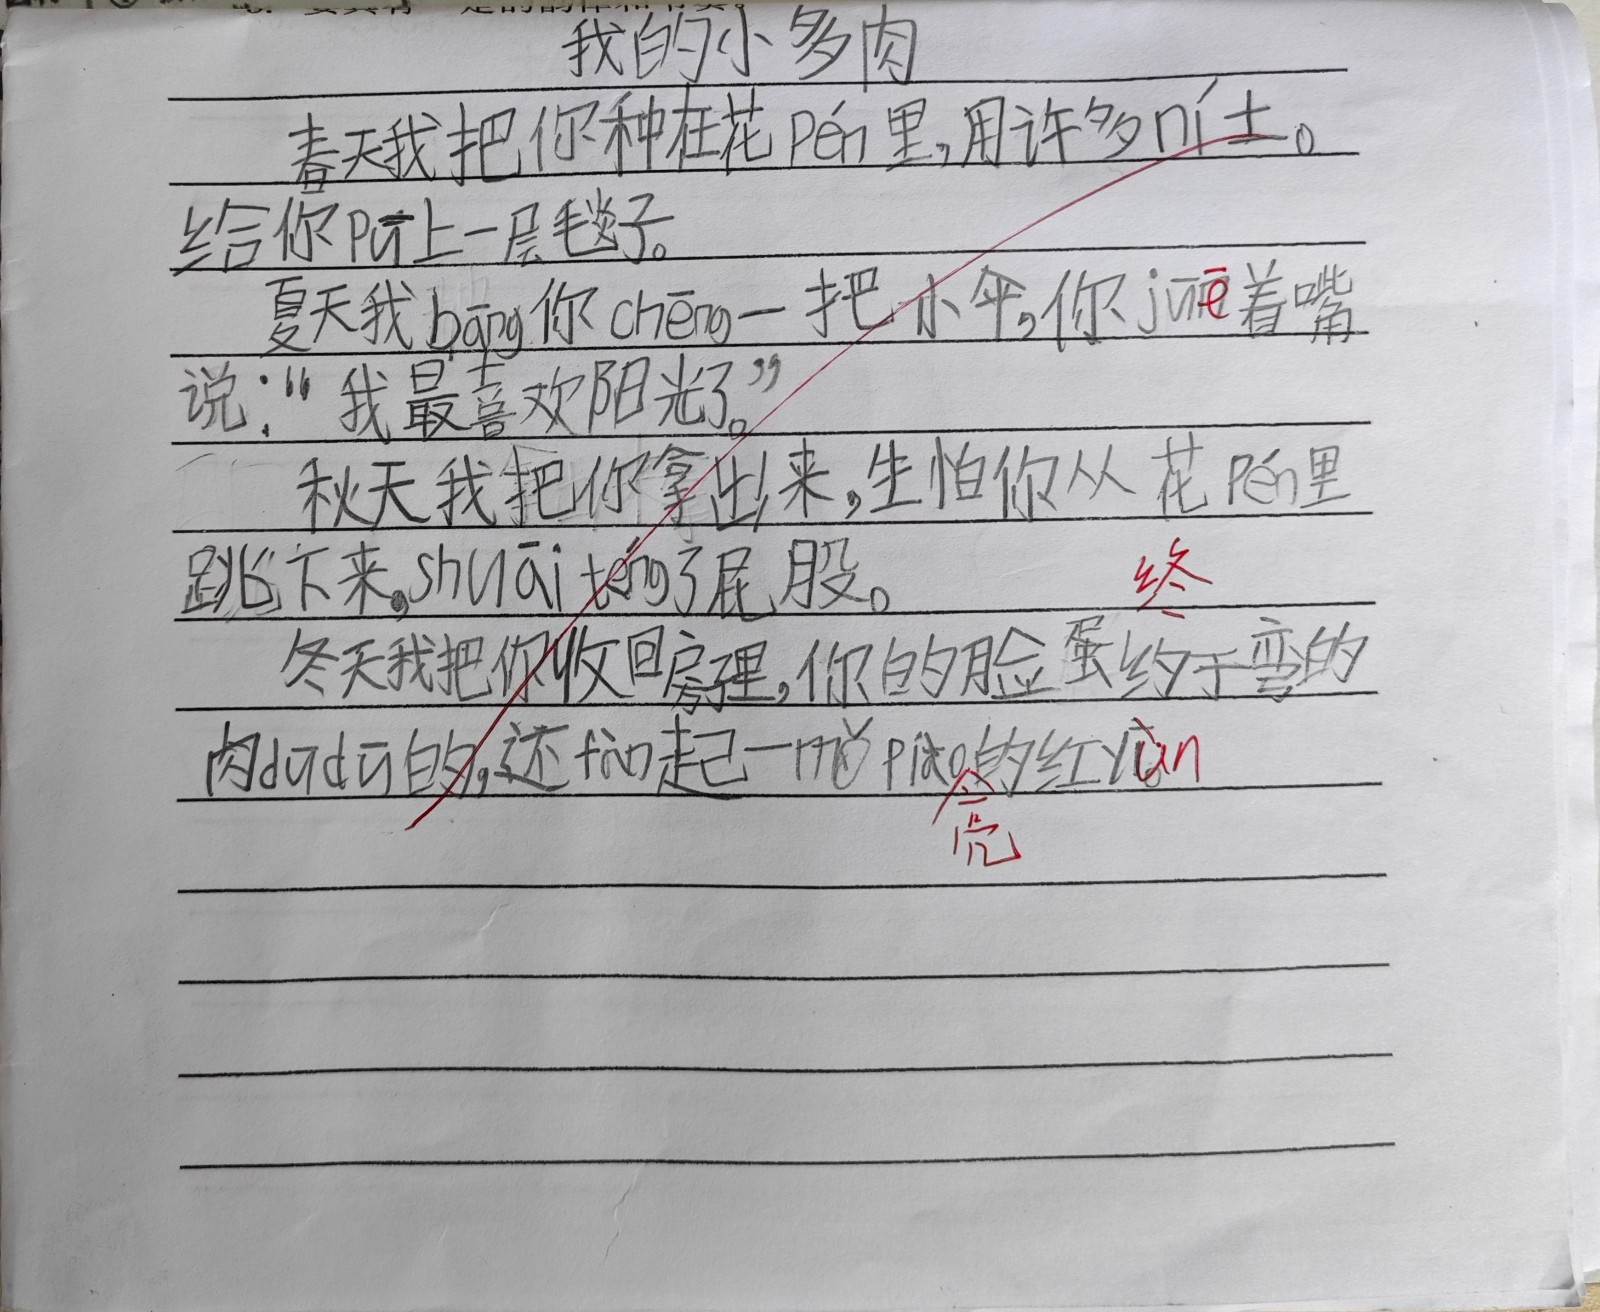 我的小多肉
春天我把你种在花pén里,用许多ní土。
给你pū上一层毯子。
夏天我bāng你chēng一把小伞,你juē着嘴
说:“我最喜欢阳光了。”
秋天我把你拿出来,生怕你从花pén里
跳下来,shuāi téng了屁股。
终
冬天我把你收回房里,你的脸蛋约于弯的
肉dūdū的,还fàn起一mǒ piào的红yùn
亮